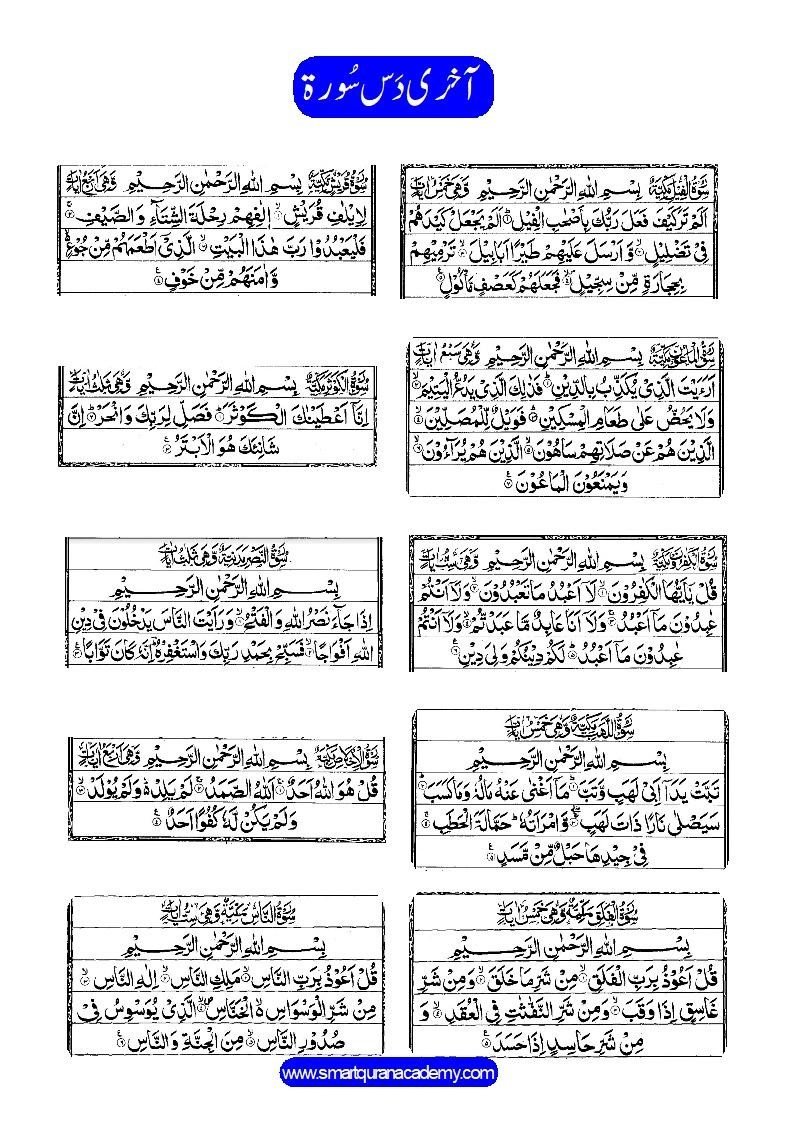 آخری دَس سُورۃ
سُوْرَةُ الْفِيْلِ مَكِّيَّةٌ بِسْمِ اللهِ الرَّحْمٰنِ الرَّحِيْمِ وَّهِيَ خَمْسُ اٰيَاتٍ
اَلَمْ تَرَ كَيْفَ فَعَلَ رَبُّكَ بِاَصْحٰبِ الْفِيْلِ ۝۱ اَلَمْ يَجْعَلْ كَيْدَهُمْ
فِيْ تَضْلِيْلٍ ۝۲ وَّاَرْسَلَ عَلَيْهِمْ طَيْرًا اَبَابِيْلَ ۝۳ تَرْمِيْهِمْ
بِحِجَارَةٍ مِّنْ سِجِّيْلٍ ۝۴ فَجَعَلَهُمْ كَعَصْفٍ مَّاْكُوْلٍ ۝۵
سُوْرَةُ قُرَيْشٍ مَكِّيَّةٌ بِسْمِ اللهِ الرَّحْمٰنِ الرَّحِيْمِ وَّهِيَ اَرْبَعُ اٰيَاتٍ
لِاِيْلٰفِ قُرَيْشٍ ۝۱ اٖلٰفِهِمْ رِحْلَةَ الشِّتَآءِ وَالصَّيْفِ ۝۲
فَلْيَعْبُدُوْا رَبَّ هٰذَا الْبَيْتِ ۝۳ الَّذِيْٓ اَطْعَمَهُمْ مِّنْ جُوْعٍ
وَّاٰمَنَهُمْ مِّنْ خَوْفٍ ۝۴
سُوْرَةُ الْمَاعُوْنِ مَكِّيَّةٌ بِسْمِ اللهِ الرَّحْمٰنِ الرَّحِيْمِ وَّهِيَ سَبْعُ اٰيَاتٍ
اَرَءَيْتَ الَّذِيْ يُكَذِّبُ بِالدِّيْنِ ۝۱ فَذٰلِكَ الَّذِيْ يَدُعُّ الْيَتِيْمَ ۝۲
وَلَا يَحُضُّ عَلٰى طَعَامِ الْمِسْكِيْنِ ۝۳ فَوَيْلٌ لِّلْمُصَلِّيْنَ ۝۴
الَّذِيْنَ هُمْ عَنْ صَلَاتِهِمْ سَاهُوْنَ ۝۵ الَّذِيْنَ هُمْ يُرَآءُوْنَ ۝۶
وَيَمْنَعُوْنَ الْمَاعُوْنَ ۝۷
سُوْرَةُ الْكَوْثَرِ مَكِّيَّةٌ بِسْمِ اللهِ الرَّحْمٰنِ الرَّحِيْمِ وَّهِيَ ثَلٰثُ اٰيَاتٍ
اِنَّآ اَعْطَيْنٰكَ الْكَوْثَرَ ۝۱ فَصَلِّ لِرَبِّكَ وَانْحَرْ ۝۲ اِنَّ
شَانِئَكَ هُوَ الْاَبْتَرُ ۝۳
سُوْرَةُ الْكٰفِرُوْنَ مَكِّيَّةٌ بِسْمِ اللهِ الرَّحْمٰنِ الرَّحِيْمِ وَّهِيَ سِتُّ اٰيَاتٍ
قُلْ يٰٓاَيُّهَا الْكٰفِرُوْنَ ۝۱ لَآ اَعْبُدُ مَا تَعْبُدُوْنَ ۝۲ وَلَآ اَنْتُمْ
عٰبِدُوْنَ مَآ اَعْبُدُ ۝۳ وَلَآ اَنَا عَابِدٌ مَّا عَبَدْتُّمْ ۝۴ وَلَآ اَنْتُمْ
عٰبِدُوْنَ مَآ اَعْبُدُ ۝۵ لَكُمْ دِيْنُكُمْ وَلِيَ دِيْنِ ۝۶
سُوْرَةُ النَّصْرِ مَدَنِيَّةٌ وَّهِيَ ثَلٰثُ اٰيَاتٍ
بِسْمِ اللهِ الرَّحْمٰنِ الرَّحِيْمِ
اِذَا جَآءَ نَصْرُ اللهِ وَالْفَتْحُ ۝۱ وَرَاَيْتَ النَّاسَ يَدْخُلُوْنَ فِيْ دِيْنِ
اللهِ اَفْوَاجًا ۝۲ فَسَبِّحْ بِحَمْدِ رَبِّكَ وَاسْتَغْفِرْهُ اِنَّهٗ كَانَ تَوَّابًا ۝۳
سُوْرَةُ اللَّهَبِ مَكِّيَّةٌ وَّهِيَ خَمْسُ اٰيَاتٍ
بِسْمِ اللهِ الرَّحْمٰنِ الرَّحِيْمِ
تَبَّتْ يَدَآ اَبِيْ لَهَبٍ وَّتَبَّ ۝۱ مَآ اَغْنٰى عَنْهُ مَالُهٗ وَمَا كَسَبَ ۝۲
سَيَصْلٰى نَارًا ذَاتَ لَهَبٍ ۝۳ وَّامْرَاَتُهٗ حَمَّالَةَ الْحَطَبِ ۝۴
فِيْ جِيْدِهَا حَبْلٌ مِّنْ مَّسَدٍ ۝۵
سُوْرَةُ الْاِخْلَاصِ مَكِّيَّةٌ بِسْمِ اللهِ الرَّحْمٰنِ الرَّحِيْمِ وَّهِيَ اَرْبَعُ اٰيَاتٍ
قُلْ هُوَ اللهُ اَحَدٌ ۝۱ اَللهُ الصَّمَدُ ۝۲ لَمْ يَلِدْ وَلَمْ يُوْلَدْ ۝۳
وَلَمْ يَكُنْ لَّهٗ كُفُوًا اَحَدٌ ۝۴
سُوْرَةُ الْفَلَقِ مَكِّيَّةٌ وَّهِيَ خَمْسُ اٰيَاتٍ
بِسْمِ اللهِ الرَّحْمٰنِ الرَّحِيْمِ
قُلْ اَعُوْذُ بِرَبِّ الْفَلَقِ ۝۱ مِنْ شَرِّ مَا خَلَقَ ۝۲ وَمِنْ شَرِّ
غَاسِقٍ اِذَا وَقَبَ ۝۳ وَمِنْ شَرِّ النَّفّٰثٰتِ فِي الْعُقَدِ ۝۴ وَ
مِنْ شَرِّ حَاسِدٍ اِذَا حَسَدَ ۝۵
سُوْرَةُ النَّاسِ مَكِّيَّةٌ وَّهِيَ سِتُّ اٰيَاتٍ
بِسْمِ اللهِ الرَّحْمٰنِ الرَّحِيْمِ
قُلْ اَعُوْذُ بِرَبِّ النَّاسِ ۝۱ مَلِكِ النَّاسِ ۝۲ اِلٰهِ النَّاسِ ۝۳
مِنْ شَرِّ الْوَسْوَاسِ الْخَنَّاسِ ۝۴ الَّذِيْ يُوَسْوِسُ فِيْ
صُدُوْرِ النَّاسِ ۝۵ مِنَ الْجِنَّةِ وَالنَّاسِ ۝۶
www.smartquranacademy.com